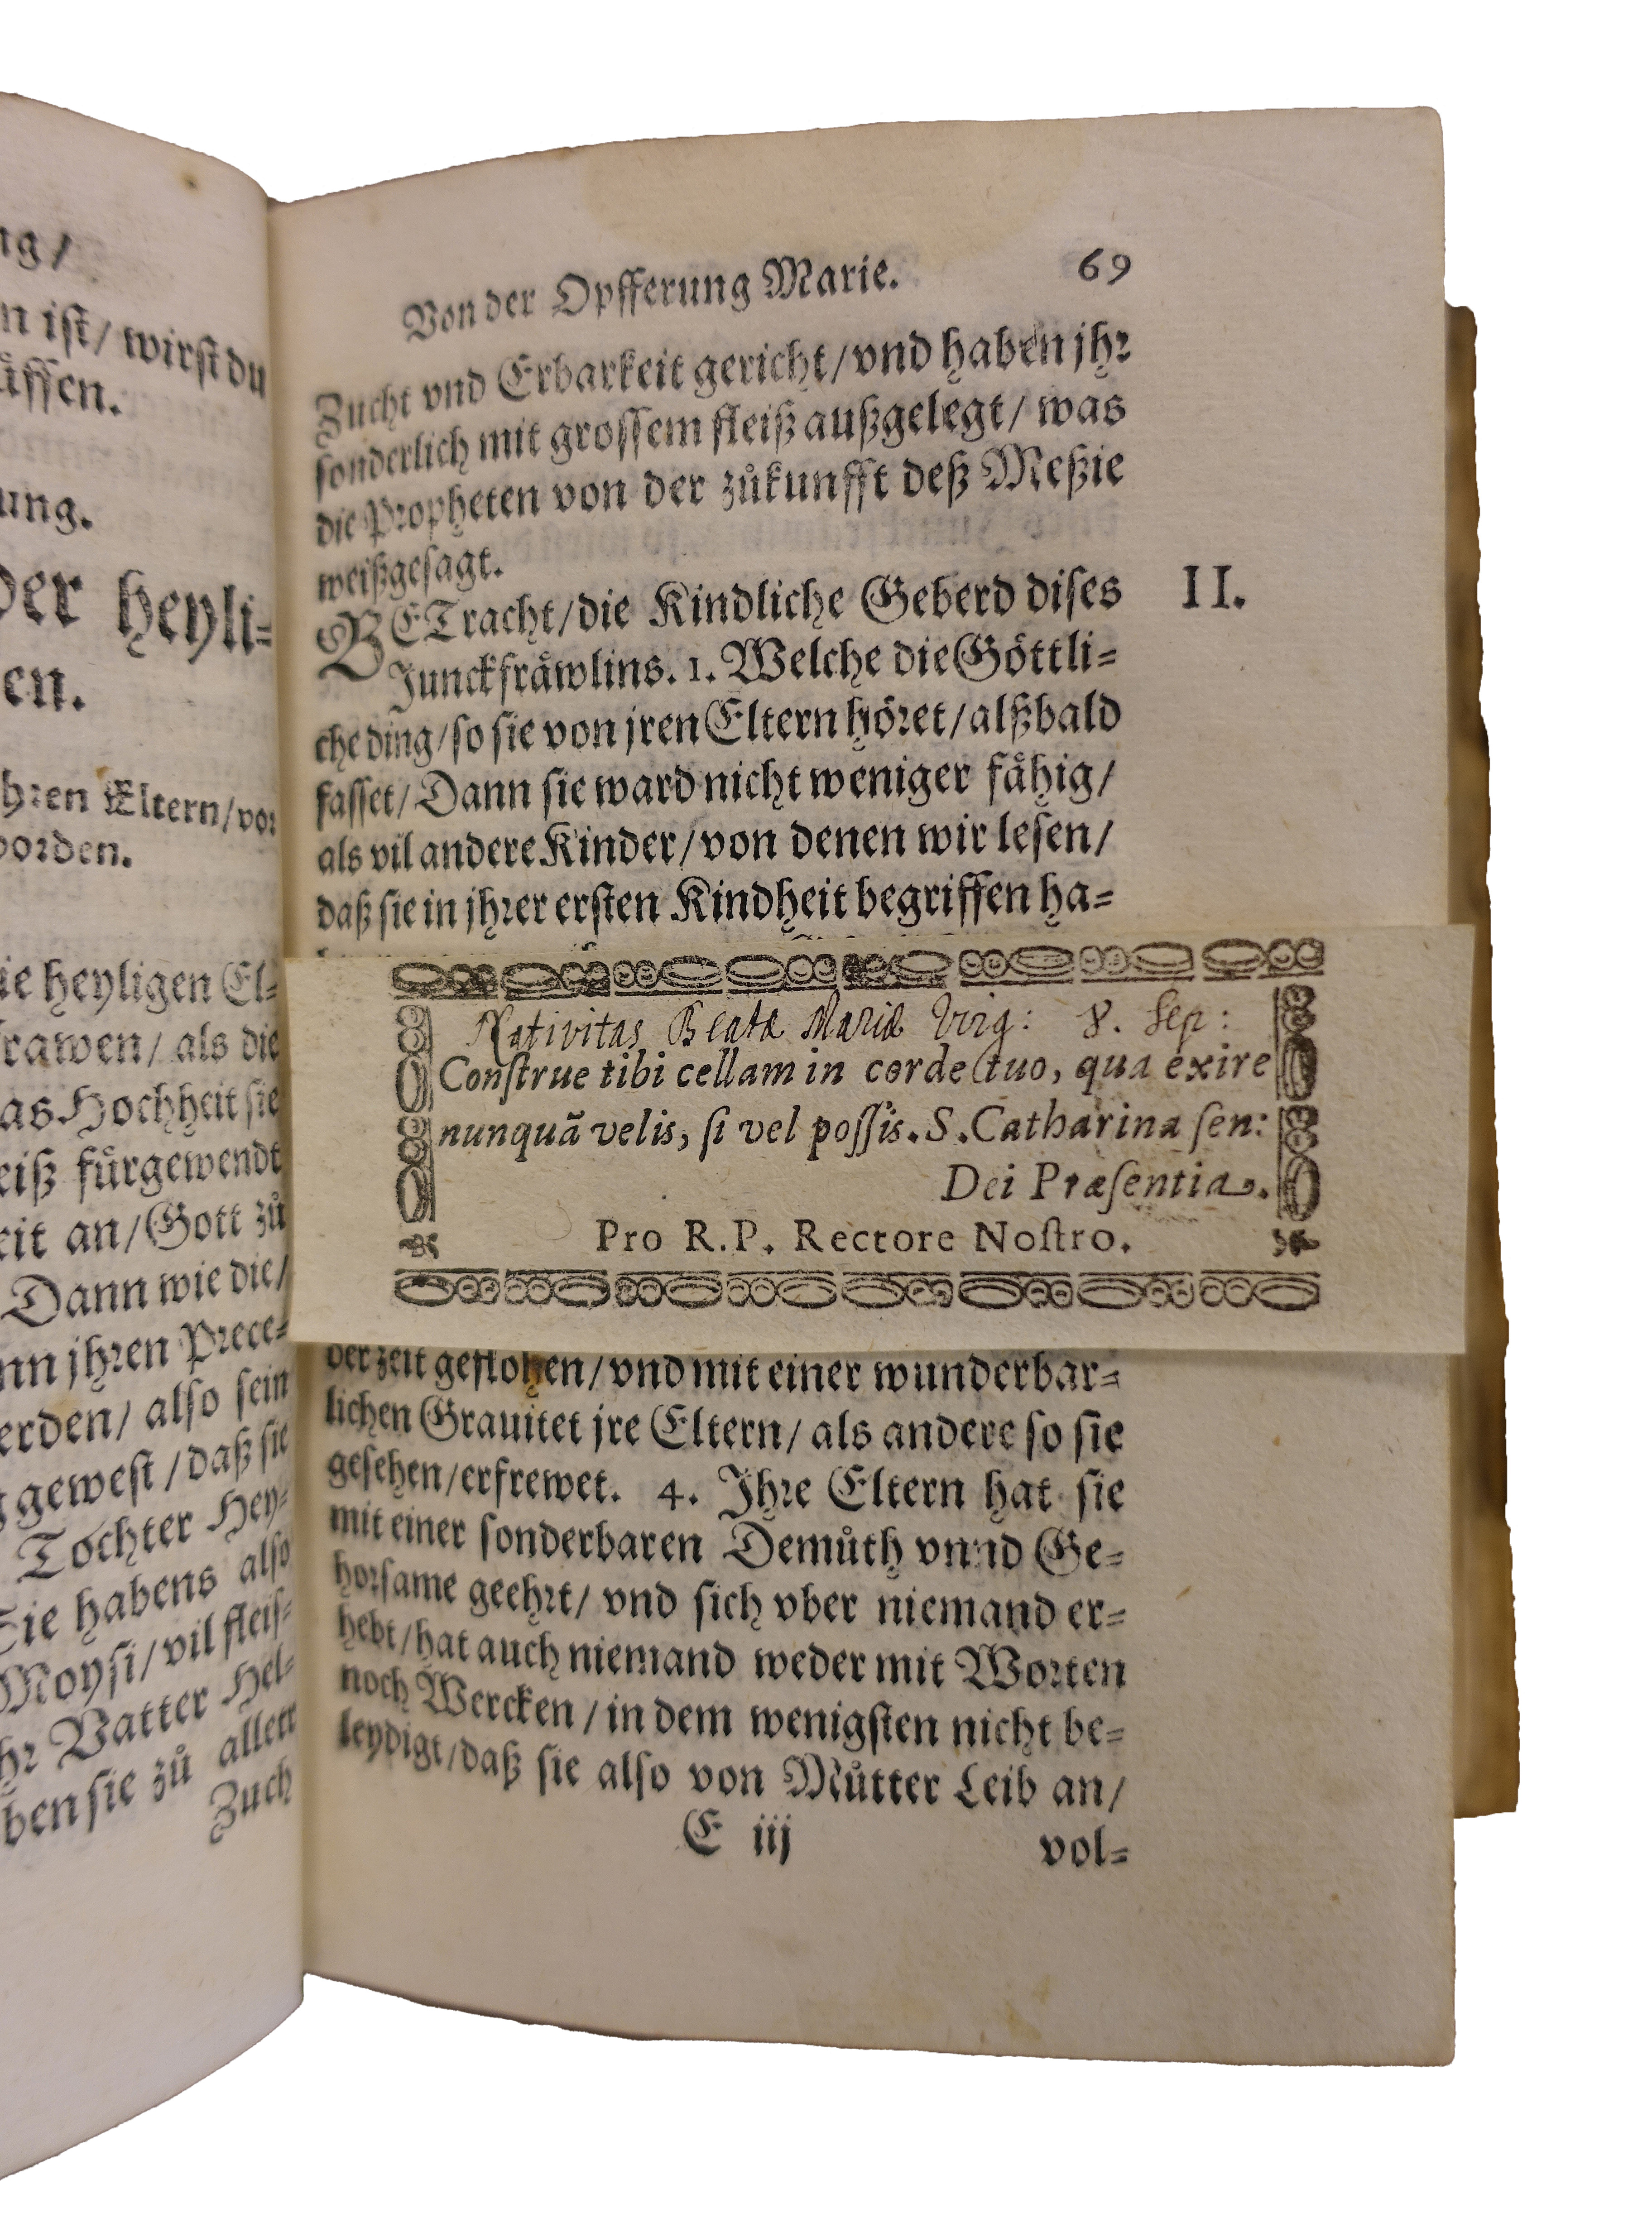 ng/
n ist/ wirst du
åssen.
ung.
der heyli=
en.
hren Eltern/vor
worden.
ie heyligen El=
frawen/ als die
as Hochheit sie
eiß fürgewendt
eit an/Gott zů
Dann wie die/
nn jhren Prece=
erden/ also sein
gewest/daß sie
Tochter Hey=
Sie habens also
Moysi/vil fleis=
hr Vatter Hel=
ben sie zů allett
Zuch
Von der Opfferung Marie. 69
Zucht vnd Erbarkeit gericht/vnd haben jhr
sonderlich mit grossem fleiß außgelegt/ was
die Propheten von der zůkunfft deß Meßie
weißgesagt.
BETracht/die Kindliche Geberd dises II.
Junckfråwlins. 1. Welche die Göttli=
che ding/so sie von jren Eltern höret/alßbald
fasset/Dann sie ward nicht weniger fåhig/
als vil andere Kinder/von denen wir lesen/
daß sie in jhrer ersten Kindheit begriffen ha=
Nativitas Beatæ Mariæ Virg: 8. Sep:
Conſtrue tibi cellam in corde tuo, qua exire
nunquã velis, ſi vel poſſis. S. Catharina ſen:
Dei Præſentia.
Pro R.P. Rectore Noſtro.
der zeit geflohen/vnd mit einer wunderbar=
lichen Grauitet jre Eltern/ als andere so sie
gesehen/erfrewet. 4. Ihre Eltern hat sie
mit einer sonderbaren Demůth vnnd Ge=
horsame geehrt/ vnd sich vber niemand er=
hebt/hat auch niemand weder mit Worten
noch Wercken/in dem wenigsten nicht be=
leydigt/daß sie also von Můtter Leib an/
E iij vol=